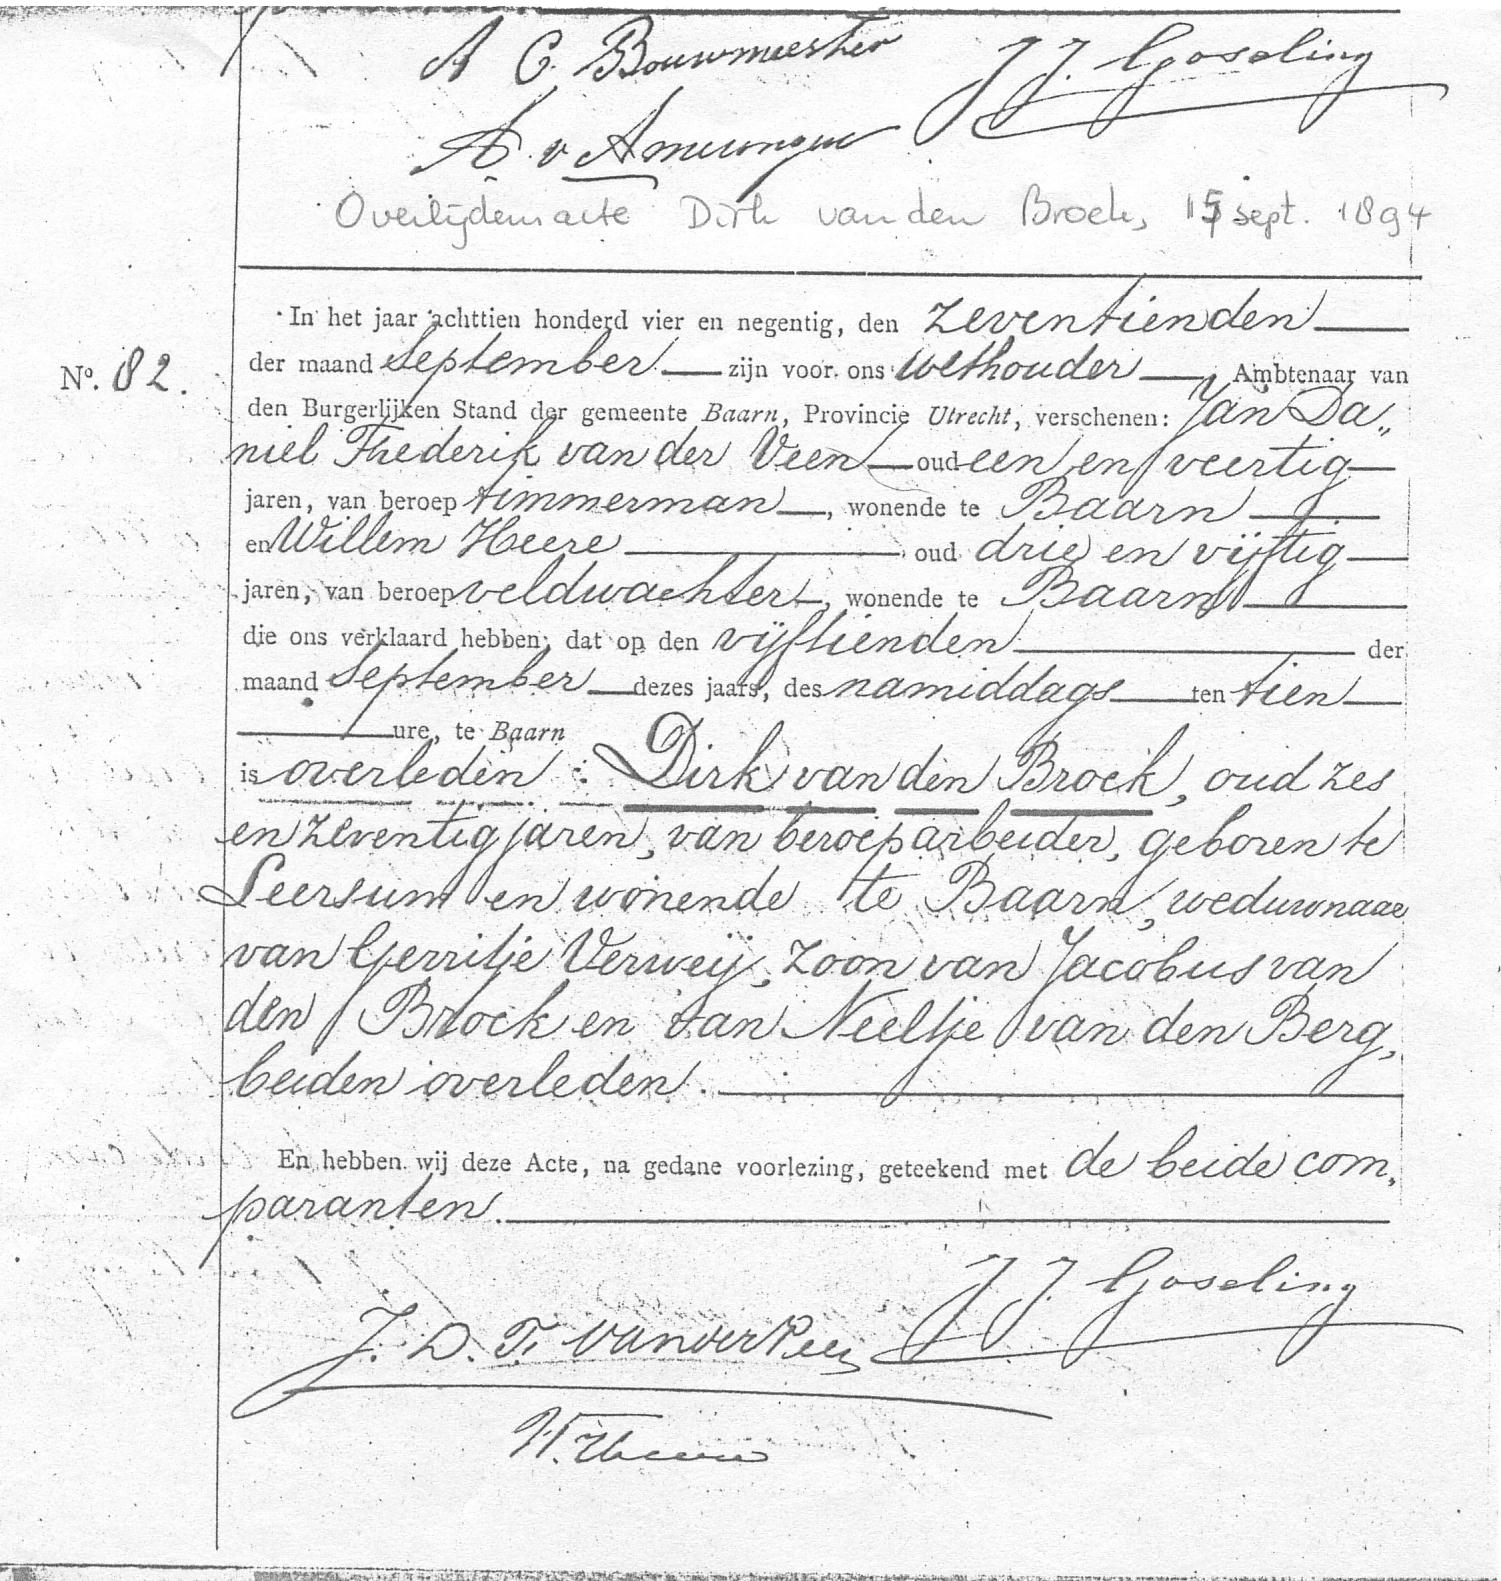 A C. Bouwmeester
J J. Goseling
A. v Amerongen
Overlijdensacte Dirk van den Broek, 15 sept. 1894
In het jaar achttien honderd vier en negentig, den zeventienden
No. 82.
der maand September zijn voor ons wethouder, Ambtenaar van
den Burgerlijken Stand der gemeente Baarn, Provincie Utrecht, verschenen: Jan Da„
niel Frederik van der Veen oud een en veertig
jaren, van beroep timmerman, wonende te Baarn
en Willem Heere oud drie en vijftig
jaren, van beroep veldwachter, wonende te Baarn
die ons verklaard hebben, dat op den vijftienden der
maand September dezes jaars, des namiddags ten tien
ure, te Baarn
is overleden : Dirk van den Broek, oud zes
en zeventig jaren, van beroep arbeider, geboren te
Leersum en wonende te Baarn, weduwnaar
van Gerritje Verweij, zoon van Jacobus van
den Broek en van Neeltje van den Berg,
beiden overleden.
En hebben wij deze Acte, na gedane voorlezing, geteekend met de beide com„
paranten.
J J. Goseling
J. D. F. van der Veen
W. Heere